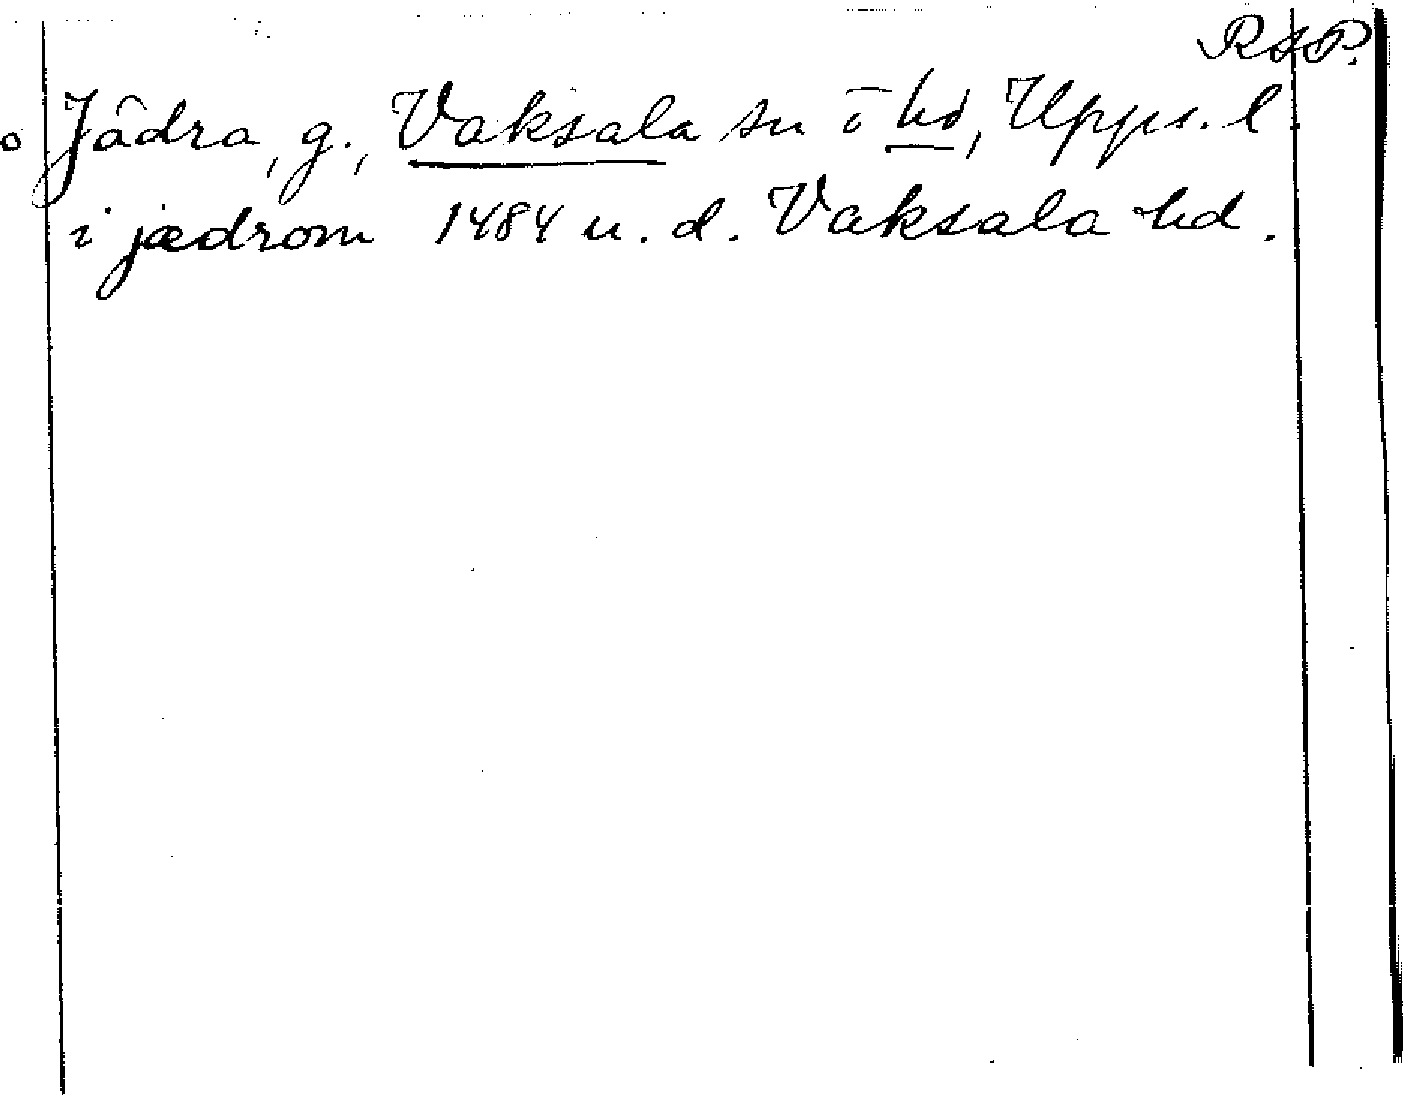 RSP.
Jädra, g., Vaksala sn o hd, Upps. l.
i jædrom 1484 u. d. Vaksala hd.